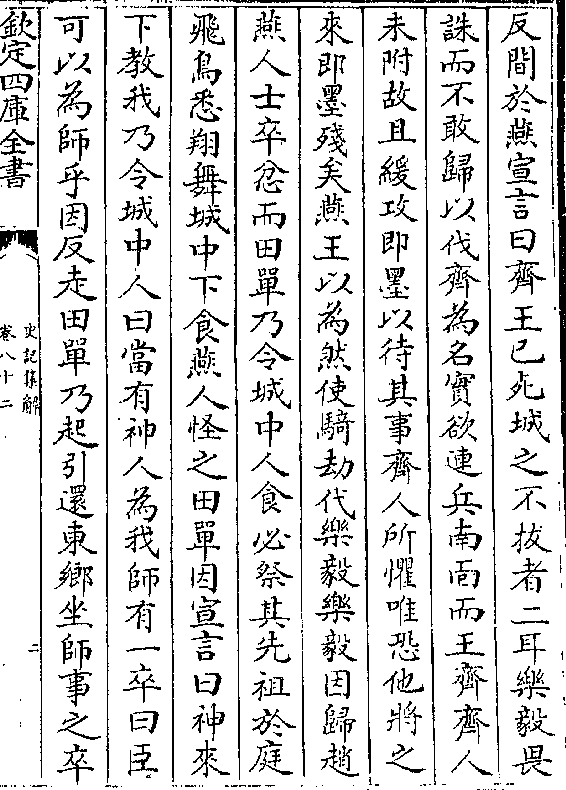 反間於燕宣言曰齊王已死城之不拔者二耳樂毅畏
誅而不敢歸以伐齊為名實欲連兵南面而王齊齊人
未附故且緩攻即墨以待其事齊人所懼唯恐他將之
來即墨殘矣燕王以為然使騎劫代樂毅樂毅因歸趙
燕人士卒忿而田單乃令城中人食必祭其先祖於庭
飛鳥悉翔舞城中下食燕人怪之田單因宣言曰神來
下教我乃令城中人曰當有神人為我師有一卒曰臣
可以為師乎因反走田單乃起引還東鄉坐師事之卒
欽定四庫全書
史記集解
卷八十二
二